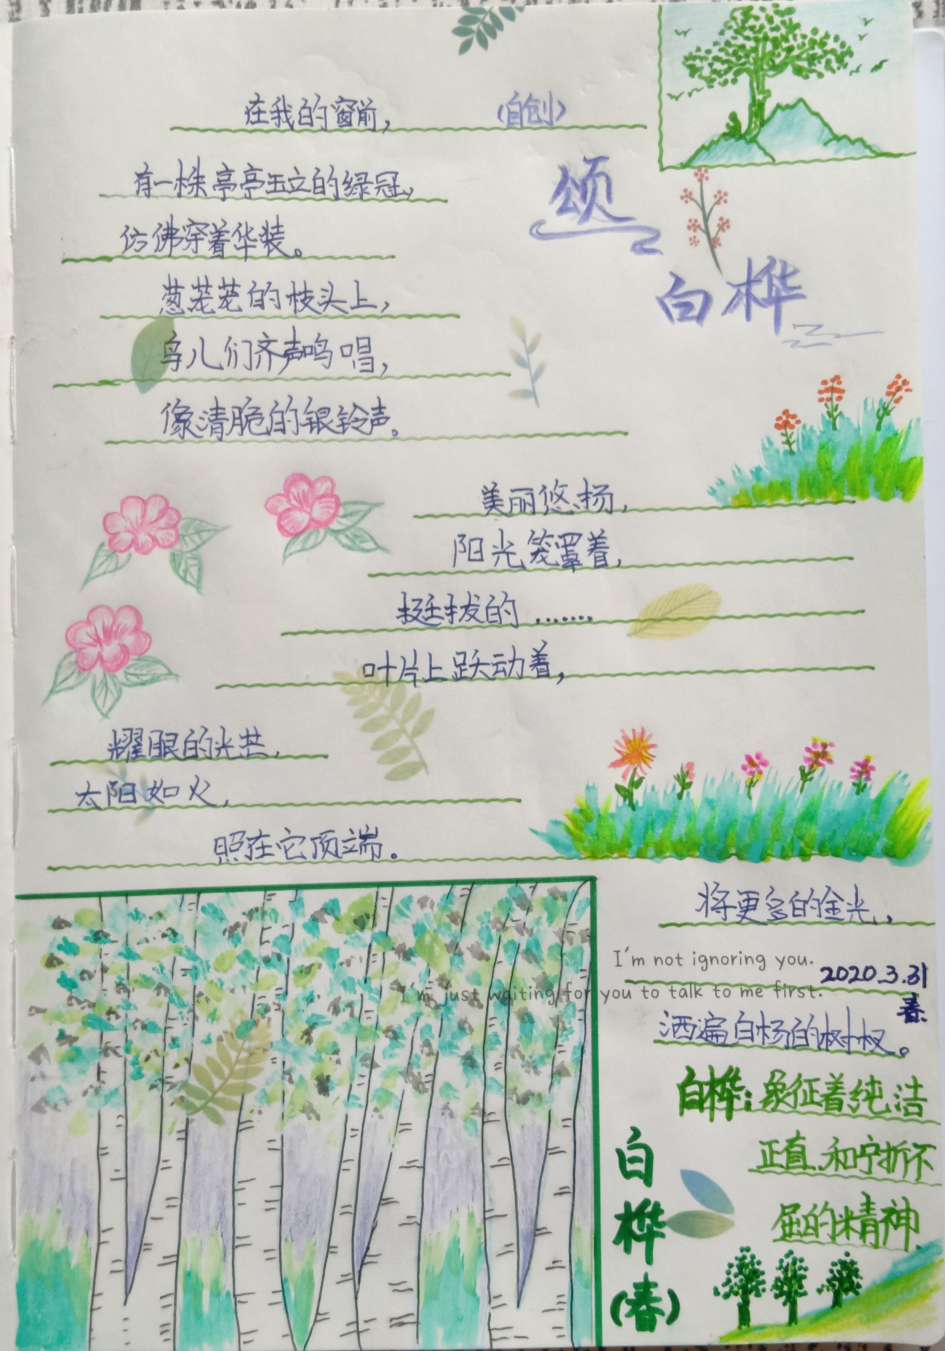 在我的窗前，
（自创）
颂
白桦
有一株亭亭玉立的绿冠，
仿佛穿着华装。
葱茏茏的枝头上，
鸟儿们齐声鸣唱，
像清脆的银铃声。
美丽悠扬，
阳光笼罩着，
挺拔的……
叶片上跃动着，
耀眼的光芒，
太阳如火，
照在它顶端。
将更多的金光，
I'm not ignoring you.
2020.3.31
I'm just waiting for you to talk to me first.
春
洒遍白杨的树杈。
白桦：象征着纯洁
正直、和宁折不
屈的精神
白桦
（春）